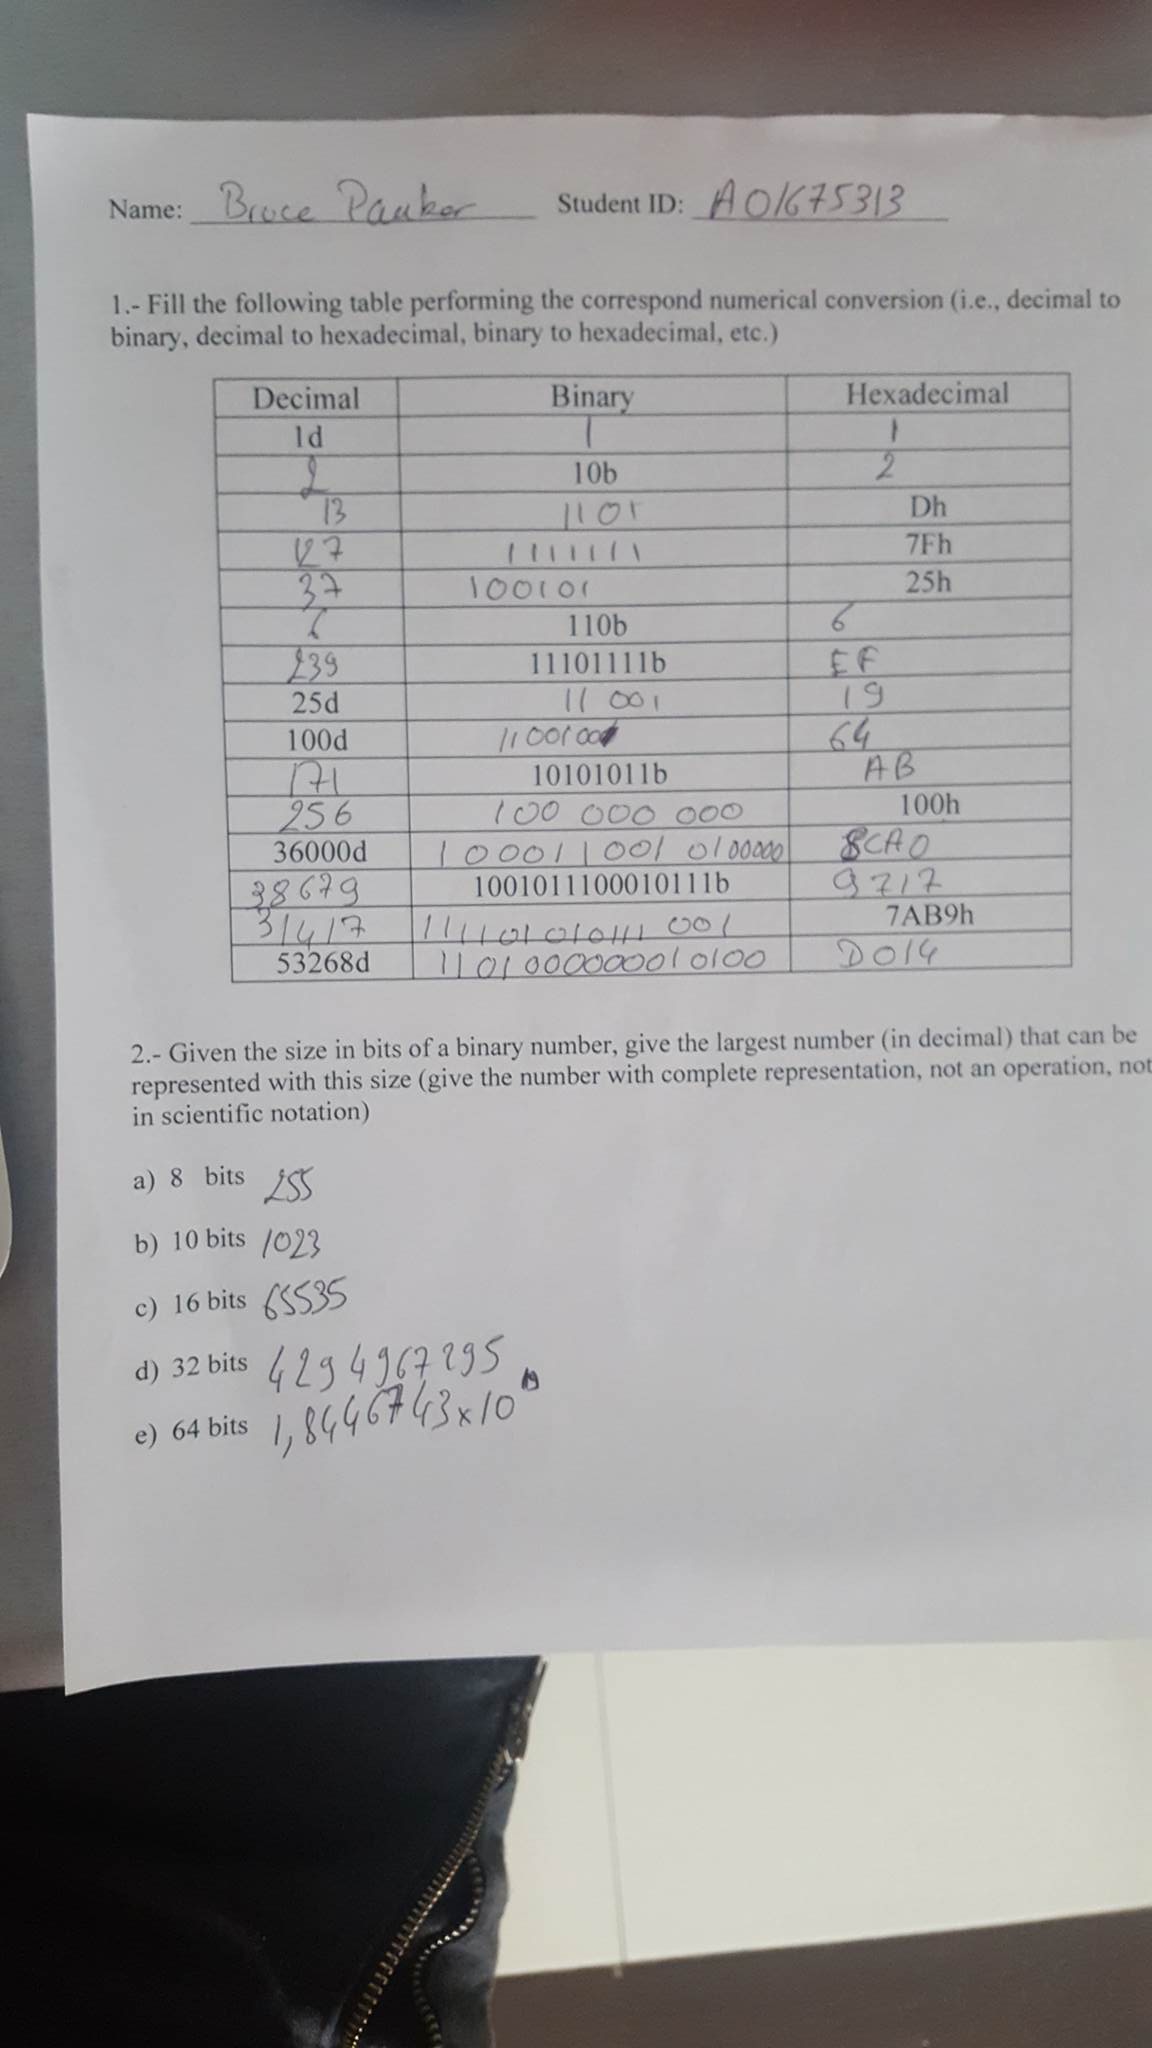 Name: Bruce Pauker Student ID: A01675313
1.- Fill the following table performing the correspond numerical conversion (i.e., decimal to
binary, decimal to hexadecimal, binary to hexadecimal, etc.)
Decimal Binary Hexadecimal
1d 1 1
2 10b 2
13 1101 Dh
127 1111111 7Fh
37 100101 25h
6 110b 6
239 11101111b EF
25d 11 001 19
100d 1100100 64
171 10101011b AB
256 100 000 000 100h
36000d 1000110010100000 8CA0
38679 1001011100010111b 9717
31417 7AB9h
53268d 1101000000010100 D014
2.- Given the size in bits of a binary number, give the largest number (in decimal) that can be
represented with this size (give the number with complete representation, not an operation, not
in scientific notation)
a) 8 bits 255
b) 10 bits 1023
c) 16 bits 65535
d) 32 bits 4294967295
e) 64 bits 1,8446743x10